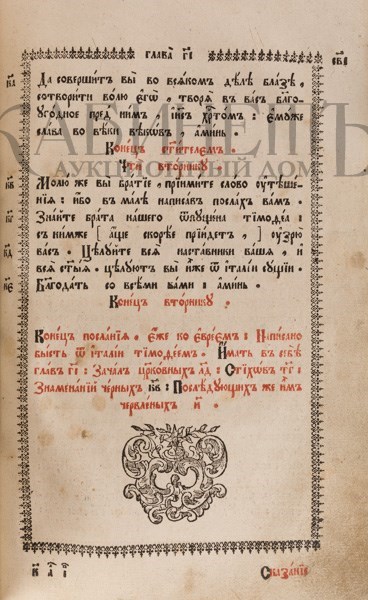 глава гі
Да совершитъ вы во всякомъ дѣлѣ блазѣ,
сотворити волю єгѡ, творѧ въ васъ блго-
угодное пред нимъ, іис хртомъ: ємуже
слава во вѣки вѣкѡвъ, аминь.
Конецъ стителемъ.
Чти вторнику.
Молю же вы братїе, прїимите слово оутѣше-
нїѧ: ибо въ малѣ написавъ послахъ вамъ.
Знайте брата нашего ѿпущена тїмоѳеа:
съ нимже [ аще скорѣе прїидетъ, ] оузрю
васъ. Цѣлуйте всѧ наставники вашѧ, и
всѧ стыѧ. цѣлуютъ вы иже ѿ італїи сущїи.
Блгодать со всѣми вами: аминь.
Конецъ вторнику.
Конецъ посланїѧ. єже ко єврїємъ: Написано
бысть ѿ італїи тїмоѳеемъ. Имать въ себѣ
главъ гі: Зачалъ црковныхъ лд: Стїховъ тг:
Знаменанїй черныхъ кв: Послѣдующихъ же имъ
червленыхъ и.
Сказанїе
КАБИНЕТЪ
АУКЦИОННЫЙ ДОМ